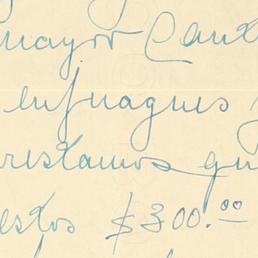 mayor Cant
enjuagues y
restamos qu
estos $300.00